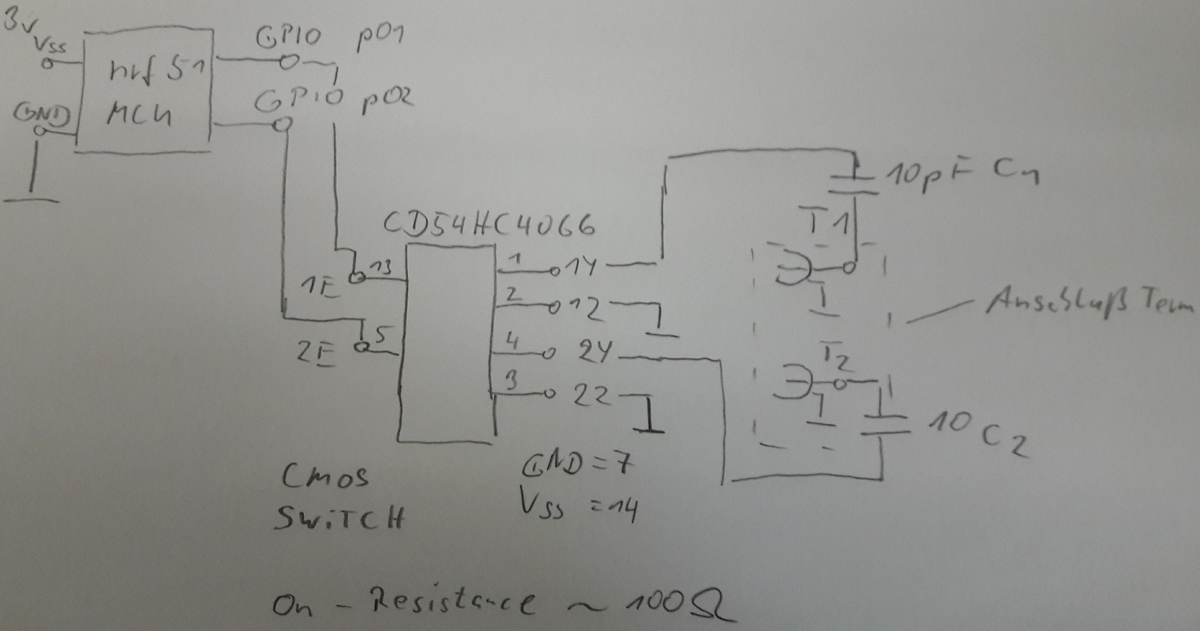 3V
Vss
GND
nrf51
MCU
GPIO p01
GPIO p02
CD54HC4066
1E 13
2E 5
1 1Y
2 1Z
4 2Y
3 2Z
10pF C1
T1
Anschluß Term
T2
10 C2
GND=7
Vss=14
CMOS
SWiTCH
On-Resistance ~ 100Ω